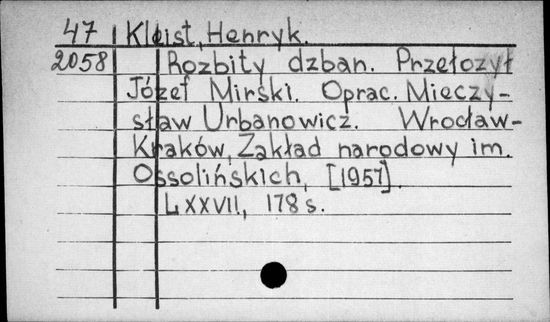 47 Kleist, Henryk.
2058 Rozbity dzban. Przełożył
Józef Mirski. Oprac. Mieczy-
sław Urbanowicz. Wrocław-
Kraków, Zakład narodowy im.
Ossolińskich, [1957].
LXXVII, 178 s.